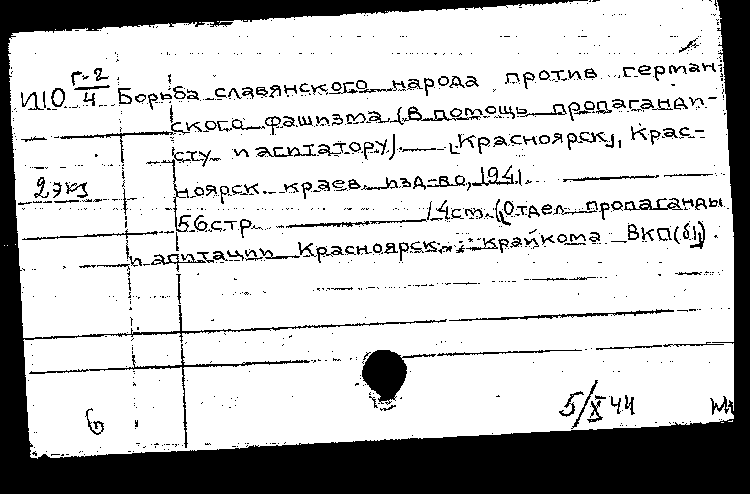 И10 Г-2/4 Борьба славянского народа против герман
ского фашизма. (В помощь пропаганди-
сту и агитатору). — [Красноярск], Крас-
2 экз ноярск. краев. изд-во, 1941.
56стр. 14см. (Отдел пропаганды
и агитации Красноярск. крайкома ВКП(б)).
5/X 44